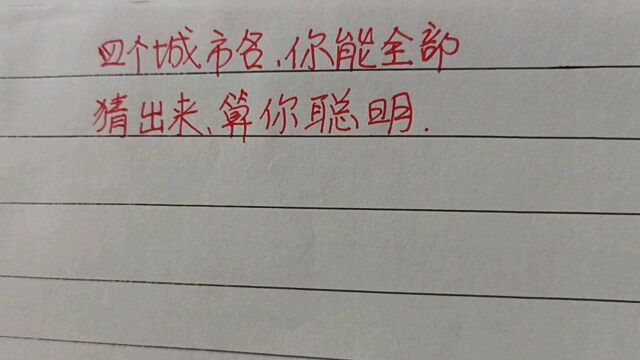 四个城市各、你能全部
猜出来、算你聪明.